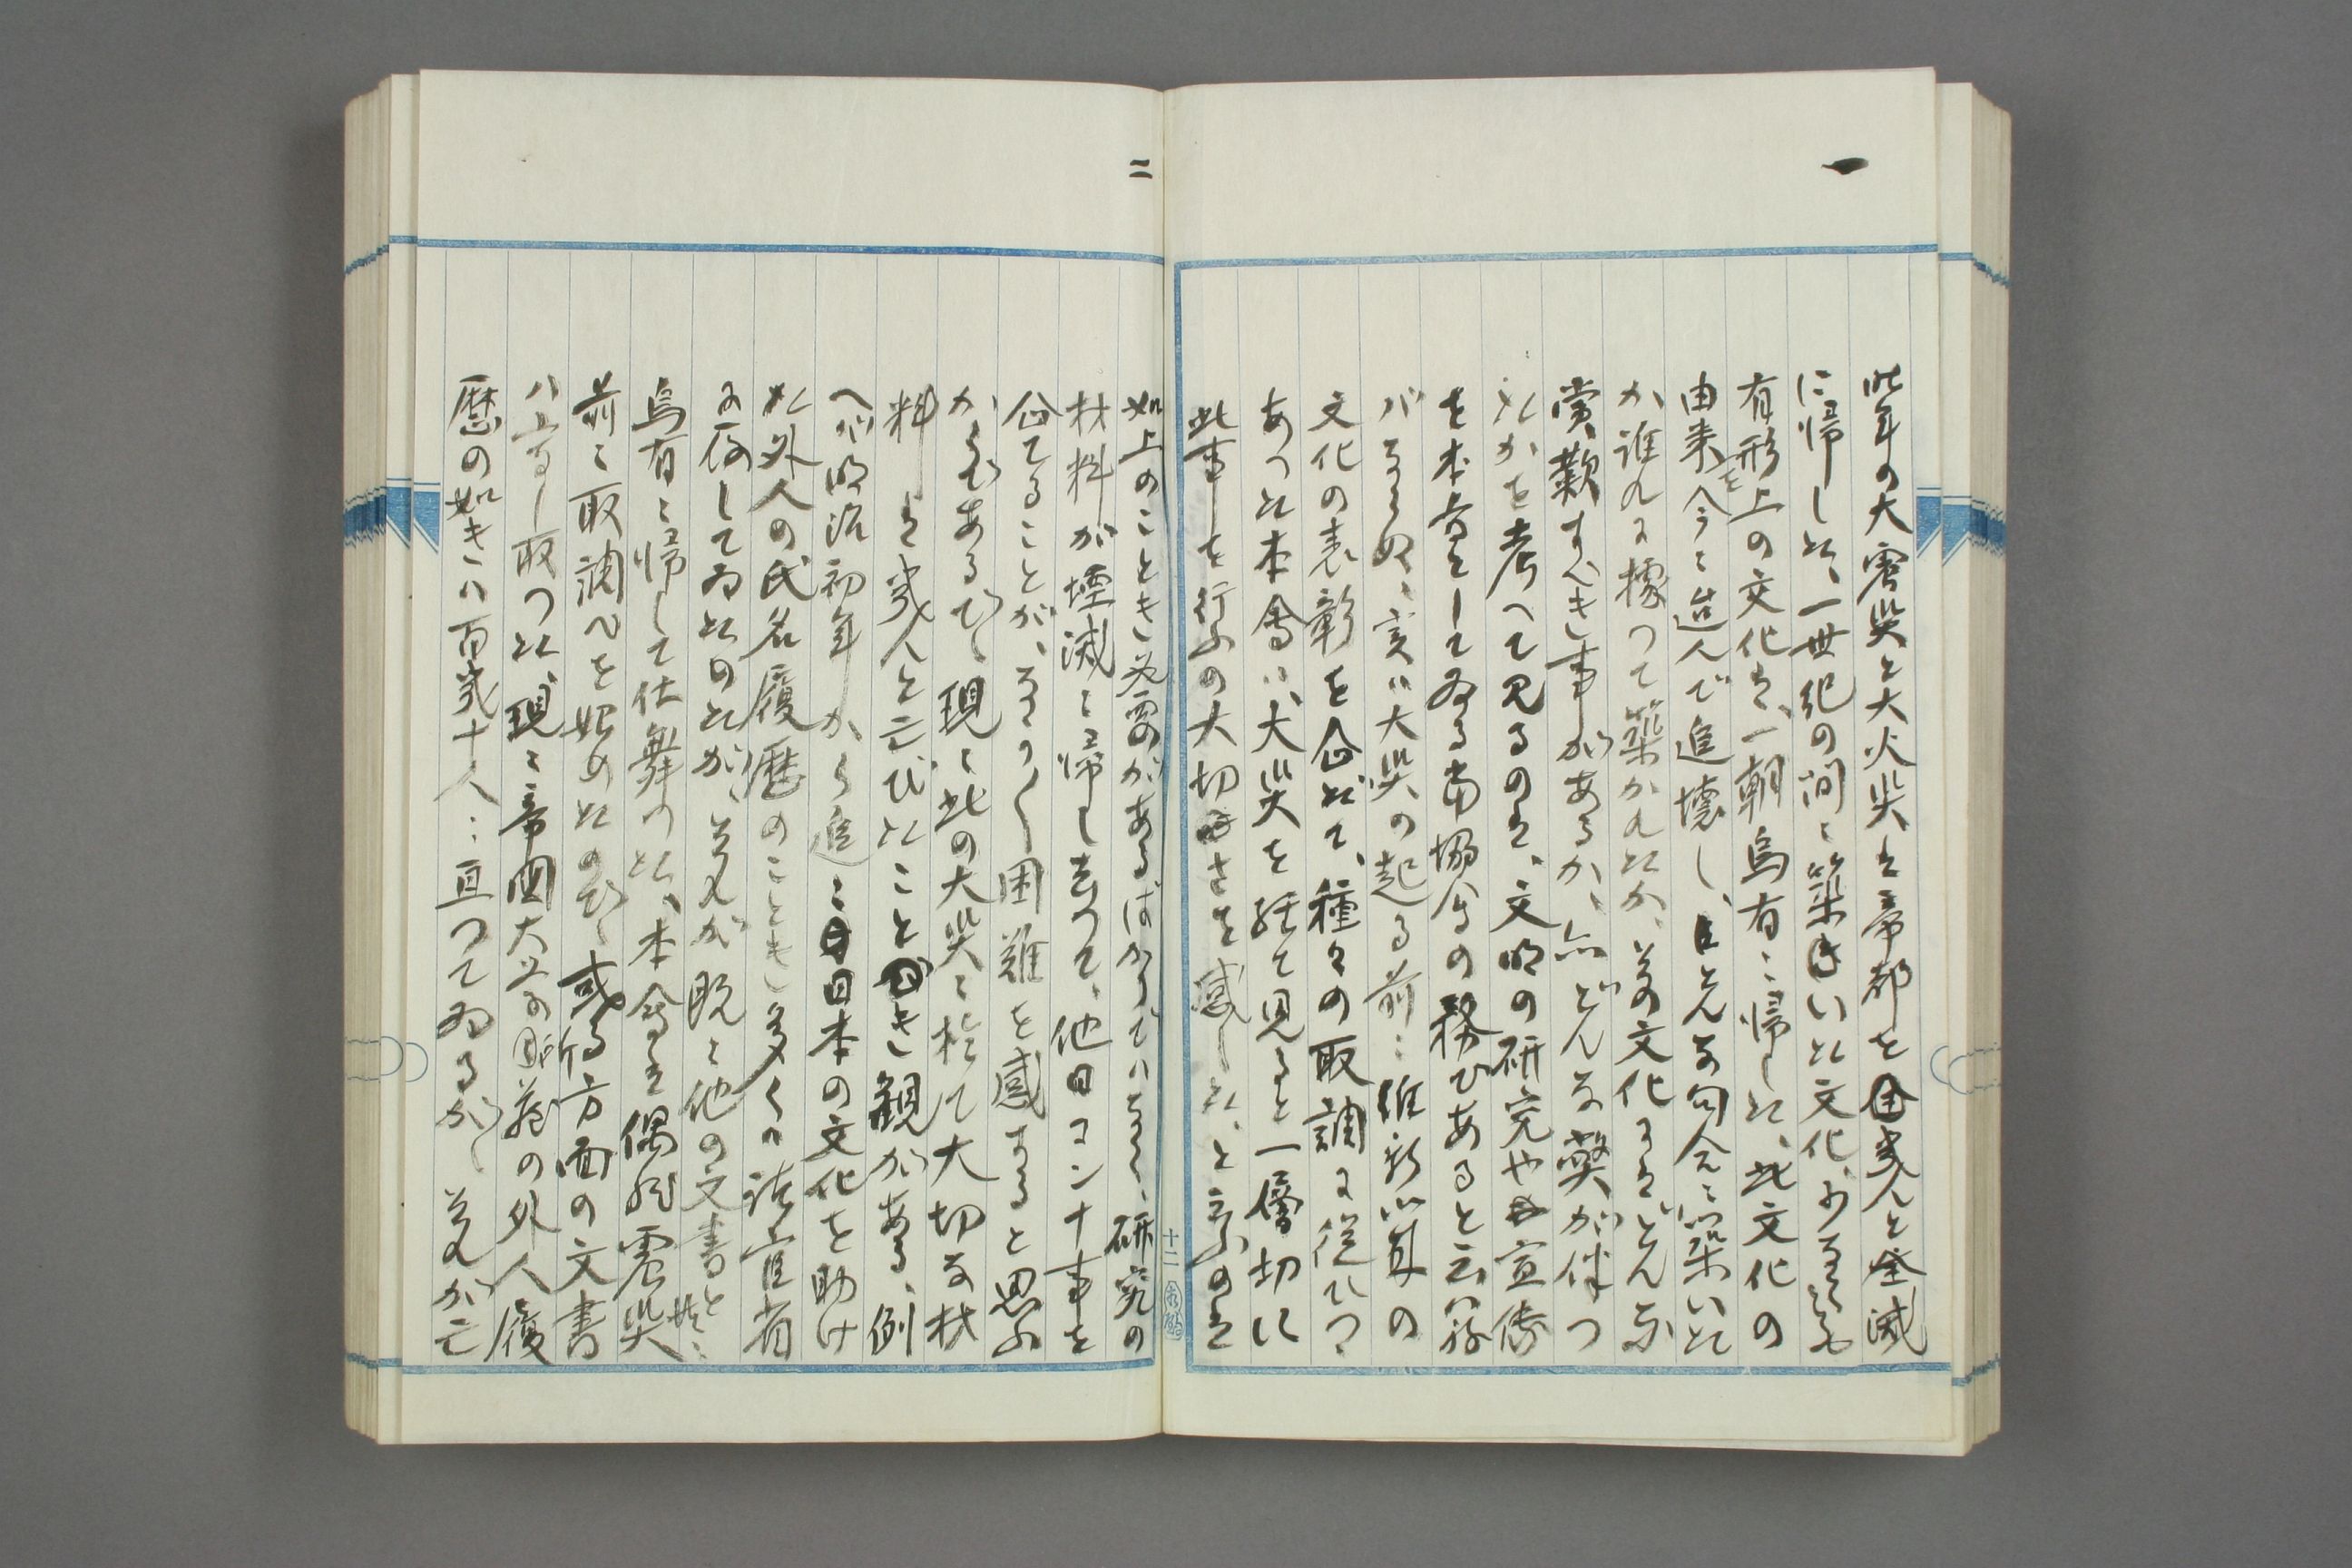 一
此年の大震災と大火災は帝都を全く殆んと全滅
に帰した、一世紀の間に築いた文化、少なくも
有形上の文化は、一朝烏有に帰した、此文化の
由来を今に迨んで追壊し、どんな向々に築いた
か誰れに據つて築かれたか、其の文化にはどんな
賞歎すべき事があるか、亦どんな弊が伴つ
たかを考へて見るのは、文明の研究や宣伝
を本旨として居る当協会の務であると云はね
バならぬ、実ハ大災の起る前に維新以来の
文化の表彰を企だて、種々の取調に従ひつゝ
あつた本會ハ、大災を経て見ると一層切に
此事を行ふの大切さを感じた、と云ふのは
十二
二
如上のことき必要があるばかりでハなく、研究の
材料が堙滅に帰し去つて、他日コンナ事を
企てることが、なか〱困難を感ずると思ふ
からである、現に此の大災に於て大切な材
料は殆んと亡びたことき観がある、例
へバ明治初年から進に日本の文化を助け
た外人の氏名履歴のことき多くハ諸官省
に存してゐたのだが、其れが既に他の文書と共に
烏有に帰して仕舞つた、本會は偶然震災
前に取調べを始めたので、或る方面の文書
ハ写し取つた、現に帝国大学の所蔵の外人履
歴の如きハ百幾十人に亘つてゐるが、其れが亡